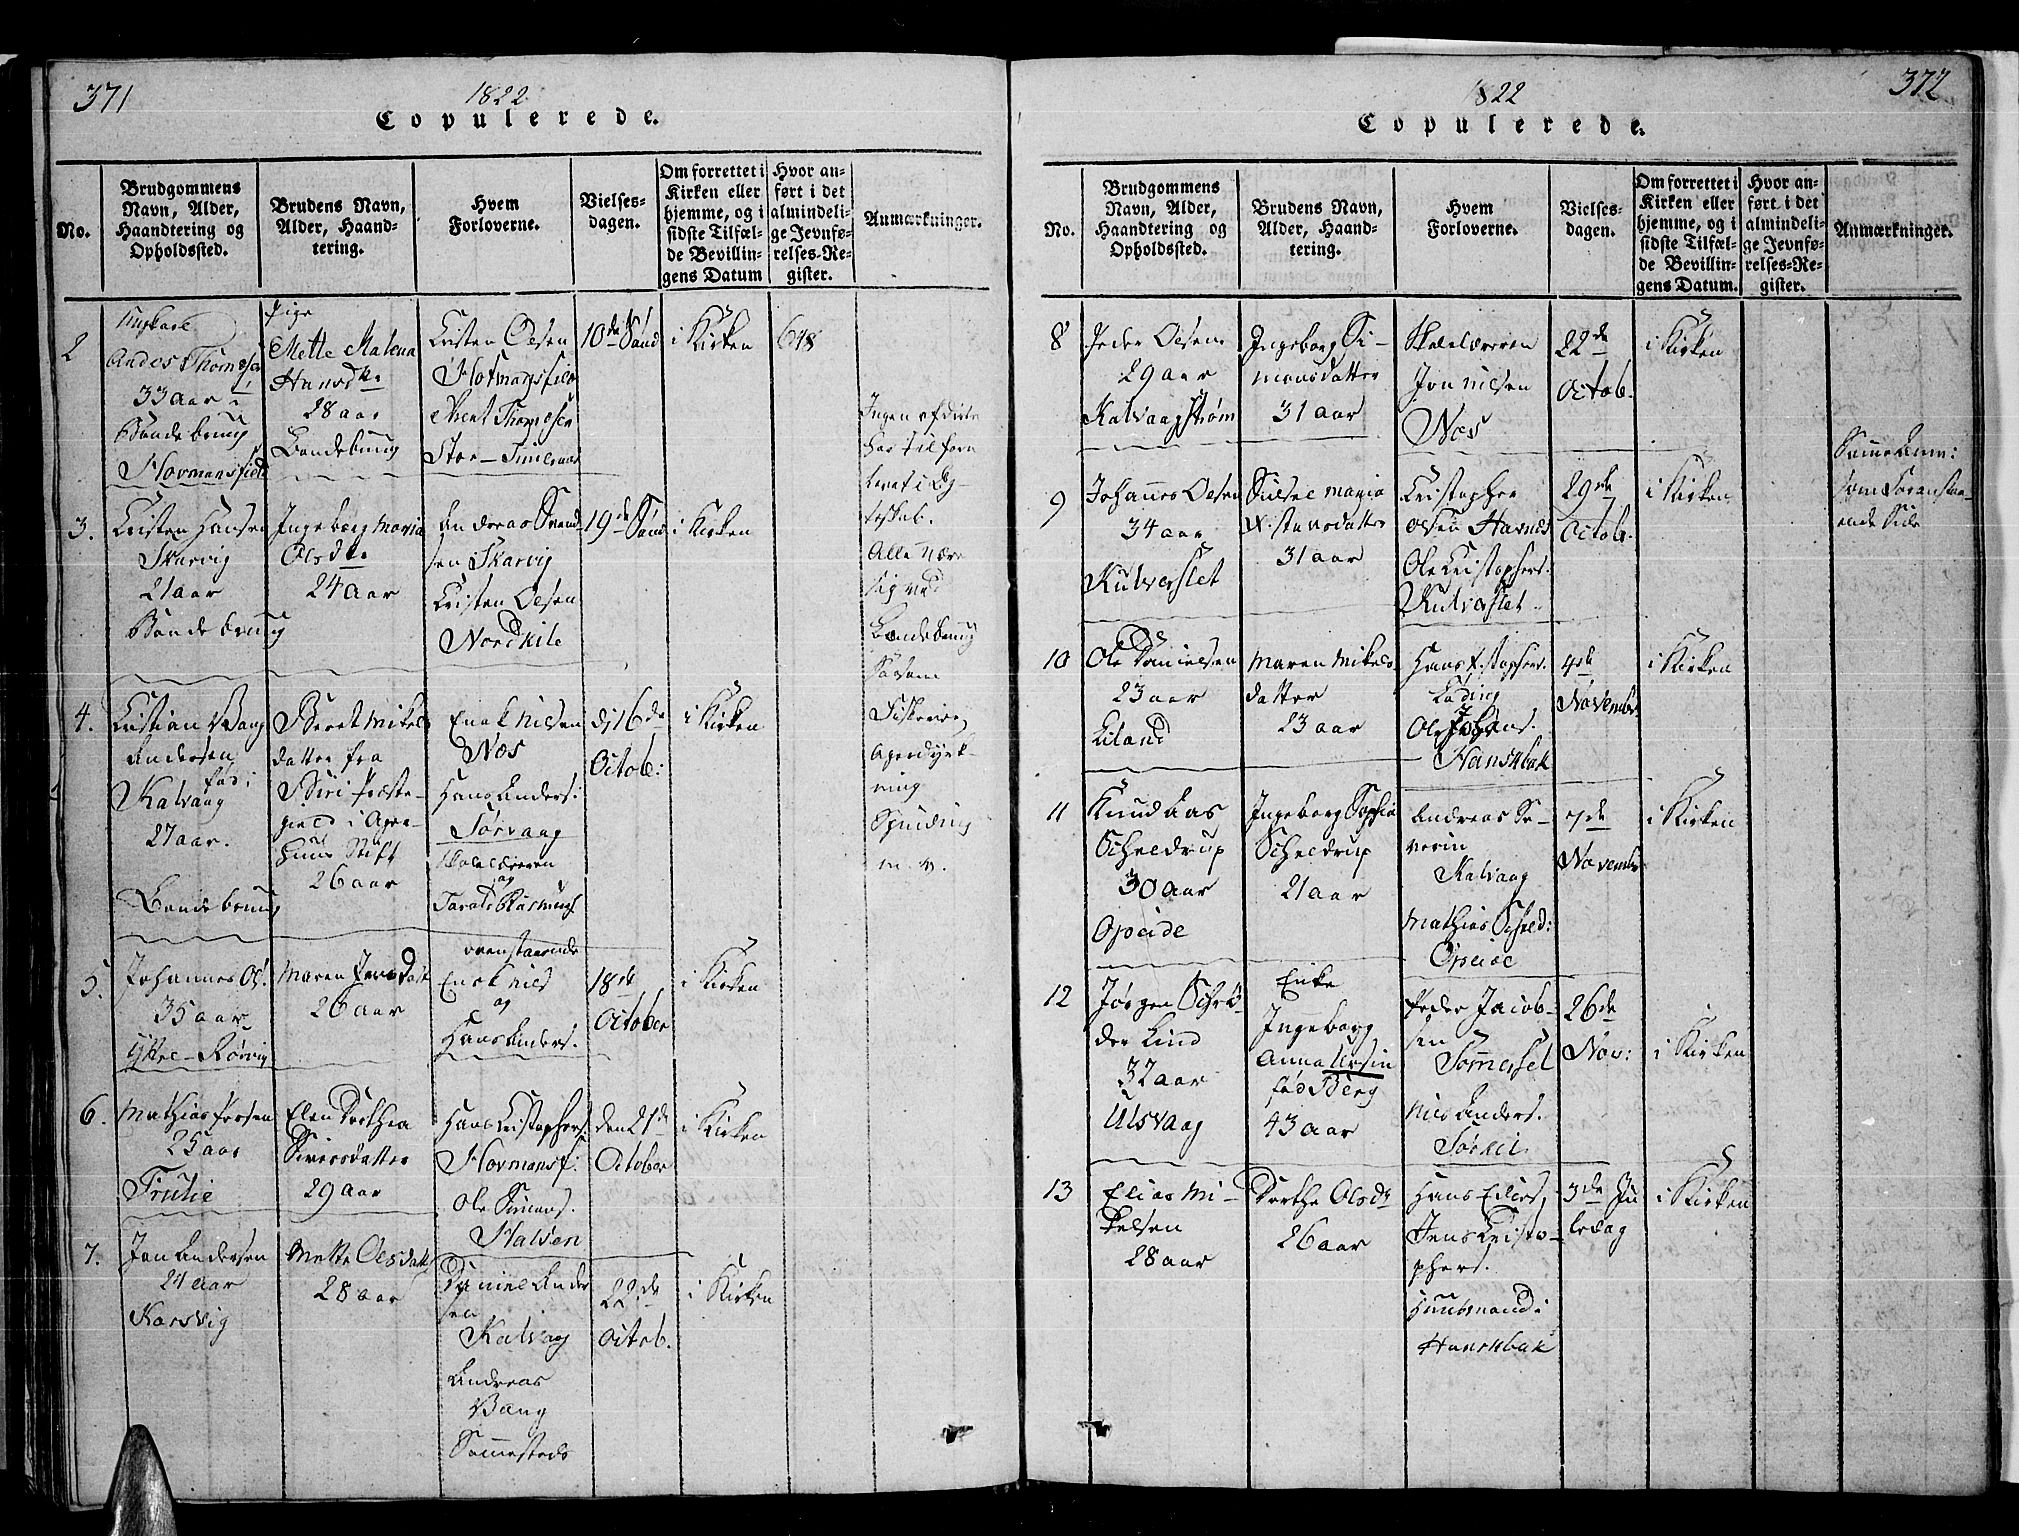 371
1822
Copulerede.
No.
Brudgommens Navn, Alder, Haandtering og Opholdssted.
Brudens Navn, Alder, Haandtering.
Hvem Forloverne.
Vielsesdagen.
Om forrettet i Kirken eller hjemme, og i sidste Tilfælde Bevillingens Datum
Hvor anført i det almindelige Jevnførelses-Register.
Anmærkninger.
2
Ungkarl
Anders Thomesen
33 aar
Bondebrug
Hovmansfield
Pige
Mette Malena
Hansdtr
28 aar
Bondebrug
Cristen Olsen
Hofmansfield
Thomesen
10de Sønd
i Kirken
648
Ingen af disse
har tilforn
levet i Eg-
teskab.
Alle nære
sig ved
Bondebrug
Saasom
Fiskerie,
Agerdyrk-
ning
m. v.
3.
Cristen Hansen
Skarvig
21 aar
Bondebrug
Ingeborg Maria
Olsdtr
24 aar
Andreas Svend-
sen Skarvig
Cristen Olsen
Nordkile
19de Sønd
i Kirken
4.
Cristian Bang
Andersen
fød i
Kalvaag
27 aar.
Bondebrug
Beret Mikels
datter fra
Præste-
gield i Agers-
huus Stift
26 aar
Enok Nilsen
Næs
Hans Anders:
Sørvaag
Skolelæreren
og
d: 16de
Octob:
i Kirken
5.
Johannes Ols.
35 aar
Ytter-Rørvig
Maren Jensdatt
26 aar
ovenstaaende
Enok Nils
og
Hans Anders.
18de
October
i Kirken
6.
Mathias Persen
25 aar
Elen Dorthea
Siversdatter
29 aar
Hans Cristophers.
Hovmansf:
Ole Simons.
Halsen
den 21de
October
i Kirken
7.
Jon Andersen
21 aar
Korsvig
Mette Olsdatt.
28 aar
Daniel Ander
sen
Kalvaag
Andreas
Bang
Sammesteds
22de
Octob.
i Kirken
372
1822
Copulerede.
No.
Brudgommens Navn, Alder, Haandtering og Opholdssted.
Brudens Navn, Alder, Haandtering.
Hvem Forloverne.
Vielsesdagen.
Om forrettet i Kirken eller hjemme, og i sidste Tilfælde Bevillingens Datum.
Hvor anført i det almindelige Jevnførelses-Register.
Anmærkninger.
8
Peder Olsen
29 aar
Kalvaagstrøm
Ingeborg Si-
monsdatter
31 aar
Skolelæreren
Jon Nilsen
Næs
22de
Octob.
i Kirken
Samme Anm:
som foranstaa-
ende Side
9
Johannes Olsen
34 aar
Kulverslet
Maria
31 aar
Cristopher
Olsen Havnes
Ole Cristophers.
Kulverslet
29de
Octob.
i Kirken
10
Ole Danielsen
23 aar
Eiland
Maren Mikels
datter
23 aar
Hans X.stophers.
Løding
Ole Johans.
Hanskbak
4de
November
i Kirken
11
Knud Aas
Scheldrup
30 aar
Opeide
Ingeborg Sophia
Scheldrup
21 aar
Andreas Se-
verin
Kalvaag
Mathias Scheld:
Opeide
7de
November
i Kirken
12
Jørgen Schrø-
der Lind
32 aar
Ulsvaag
Enke
Ingeborg
Anna Ursin
fød Berg
43 aar
Peder Jacob-
sen
Sommersel
Nils Anders.
26de
Nov:
i Kirken
13
Elias Mi-
kelsen
28 aar
Dorthe Olsdr
26 aar
Hans Eilers,
Jens Cristo-
phers.
Huusmand i
Hanskbak
3de Ju
ledag
i Kirken